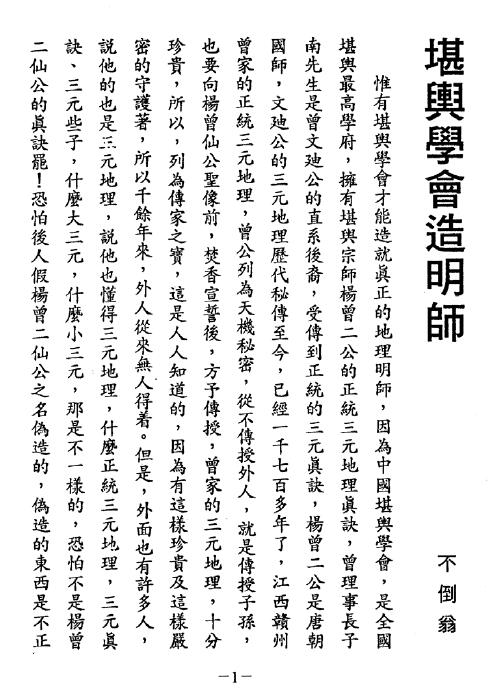 堪輿學會造明師
不倒翁
惟有堪輿學會才能造就眞正的地理明師，因為中國堪輿學會，是全國
堪輿最高學府，擁有堪輿宗師楊曾二公的正統三元地理眞訣，曾理事長子
南先生是曾文廸公的直系後裔，受傳到正統的三元眞訣，楊曾二公是唐朝
國師，文廸公的三元地理歷代秘傳至今，已經一千七百多年了，江西贛州
曾家的正統三元地理，曾公列為天機秘密，從不傳授外人，就是傳授子孫，
也要向楊曾仙公聖像前，焚香宣誓後，方予傳授，曾家的三元地理，十分
珍貴，所以，列為傳家之寶，這是人人知道的，因為有這樣珍貴及這樣嚴
密的守護著，所以千餘年來，外人從來無人得着。但是，外面也有許多人，
說他的也是三元地理，說他也懂得三元地理，什麼正統三元地理，三元眞
訣、三元些子，什麼大三元，什麼小三元，那是不一樣的，恐怕不是楊曾
二仙公的眞訣罷！恐怕後人假楊曾二仙公之名偽造的，偽造的東西是不正
—1—